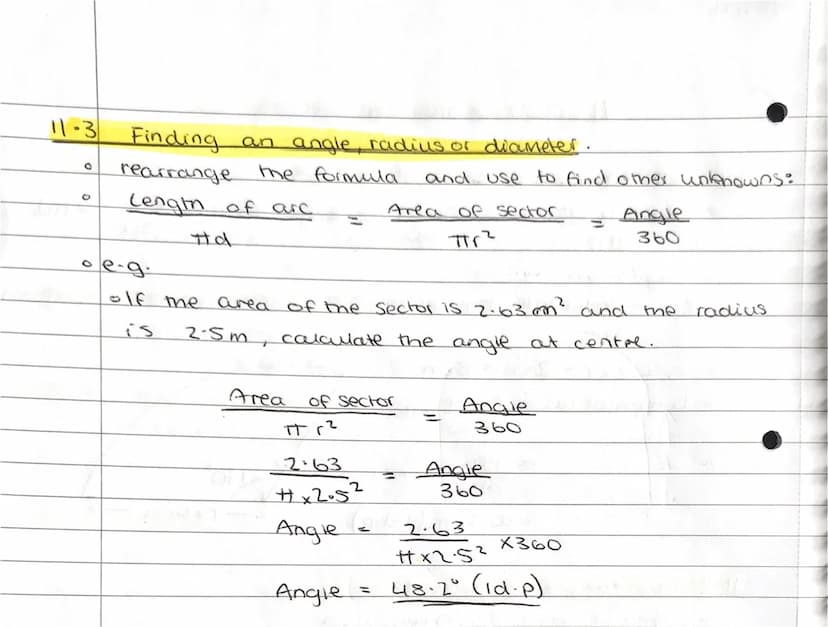 11.3 Finding an angle, radius or diameter.
◦ rearrange the formula and use to find other unknowns:
◦ Length of arc / πd = Area of sector / πr² = Angle / 360
◦ e.g.
◦ If the area of the sector is 2.63 m² and the radius
is 2.5m, calculate the angle at centre.
Area of sector / πr² = Angle / 360
2.63 / π×2.5² = Angle / 360
Angle = 2.63 / π×2.5² ×360
Angle = 48.2° (1d.p)